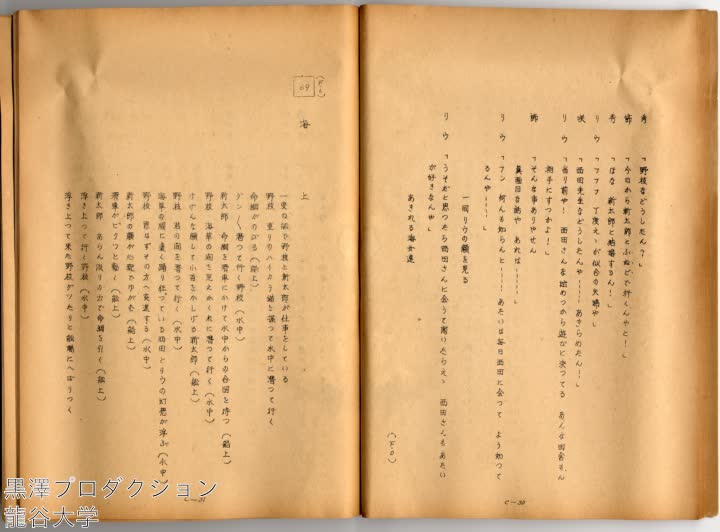 秀　「野枝などうしたん？」
節　「今日から新太郎とふねどで行くんやと！」
秀　「ほな　新太郎と結婚するん！」
リウ　「フフフ　丁度えゝが似合の夫婦や」
咲　「西田先生などうしたんや……あきらめたん！」
リウ　「当り前や！　西田さんな始めつから遊びに決つてる　あんな田舎もん
相手にすつかよ！」
節　「そんな事ありやせん
真面目な話や　あれは……」
リウ　「フン　何んも知らんと……あたいは毎日西田に会つて　よう知つて
るんや……」
一同リウの顔を見る
リウ　「うそだと思つたら西田さんに会うて聞いたらえゝ　西田さんもあたい
が好きなんや」
あきれる海女達
（FO）
C—30
（FI）
69
海　上
一隻の船で野枝と新太郎が仕事をしている
野枝　重りのハイカラ錨を張つて水中に潜つて行く
命綱がのびる（船上）
グン〳〵潜つて行く野枝（水中）
新太郎　命綱を滑車にかけて水中からの合図を待つ（船上）
野枝　海草の間を見えかくれに潜つて行く（水中）
けげんな顔して小首をかしげる新太郎（船上）
野枝　岩の間を潜つて行く（水中）
海草の間に楽く踊り狂つている西田とリウの幻想が浮ぶ（水中）
野枝　思はずその方へ突進する（水中）
新太郎の顔が心配でゆがむ（船上）
滑車がピクツと動く（船上）
新太郎　あらん限りの力で命綱を引く（船上）
浮き上つて行く野枝（水中）
浮き上つて来た野枝グツたりと船端にへばりつく
C—31
黒澤プロダクション
龍谷大学